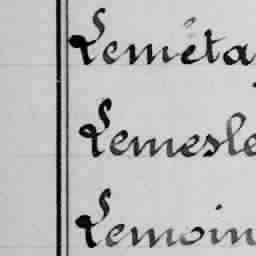 Leméta
Lemesle
Lemoin